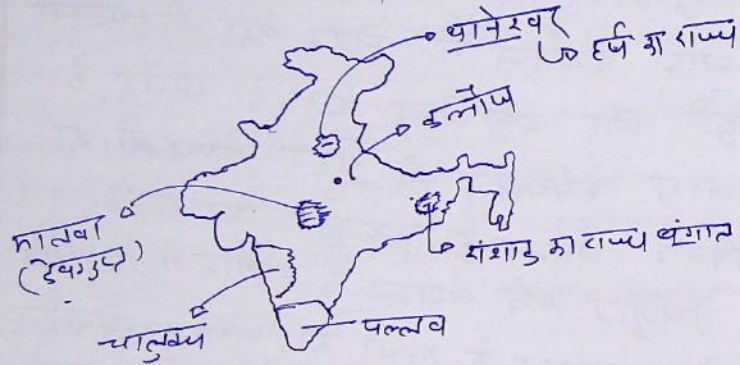 थानेश्वर
↳ हर्ष का राज्य
कन्नौज
मालवा
(देवगुप्त)
शशांक का राज्य बंगाल
चालुक्य
पल्लव